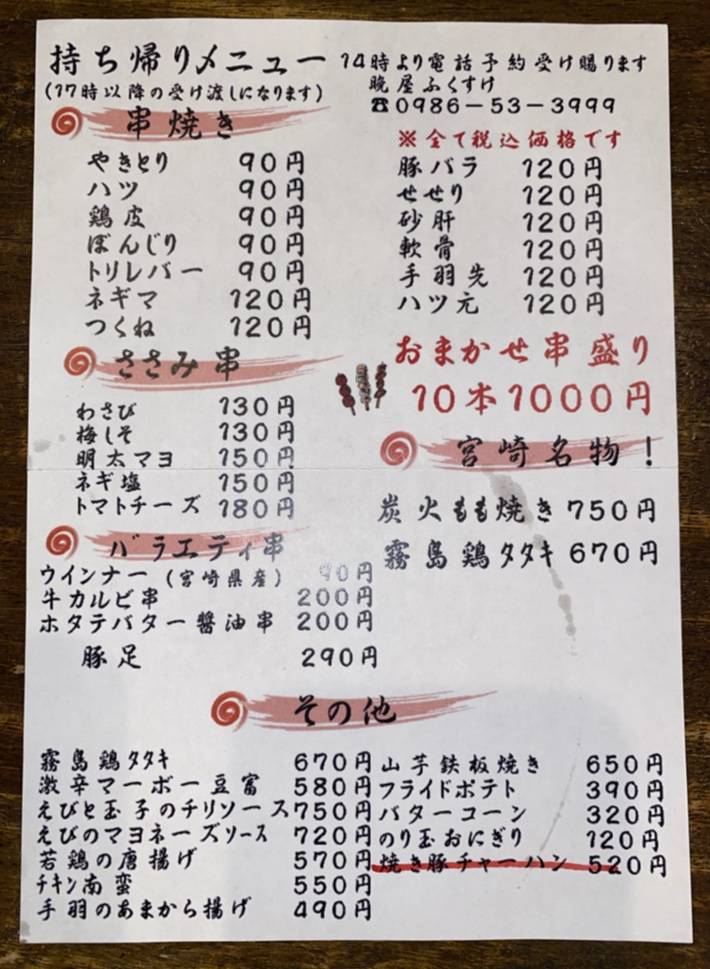 持ち帰りメニュー
(17時以降の受け渡しになります)
14時より電話予約受け賜ります
晩屋ふくすけ
☎0986-53-3999
※全て税込価格です
串焼き
やきとり 90円
ハツ 90円
鶏皮 90円
ぼんじり 90円
トリレバー 90円
ネギマ 120円
つくね 120円
豚バラ 120円
せせり 120円
砂肝 120円
軟骨 120円
手羽先 120円
ハツ元 120円
おまかせ串盛り
10本1000円
ささみ串
わさび 130円
梅しそ 130円
明太マヨ 150円
ネギ塩 150円
トマトチーズ 180円
宮崎名物!
炭火もも焼き 750円
霧島鶏タタキ 670円
バラエティ串
ウインナー(宮崎県産) 90円
牛カルビ串 200円
ホタテバター醤油串 200円
豚足 290円
その他
霧島鶏タタキ 670円
激辛マーボー豆富 580円
えびと玉子のチリソース 750円
えびのマヨネーズソース 720円
若鶏の唐揚げ 570円
チキン南蛮 550円
手羽のあまから揚げ 490円
山芋鉄板焼き 650円
フライドポテト 390円
バターコーン 320円
のり玉おにぎり 120円
焼き豚チャーハン 520円